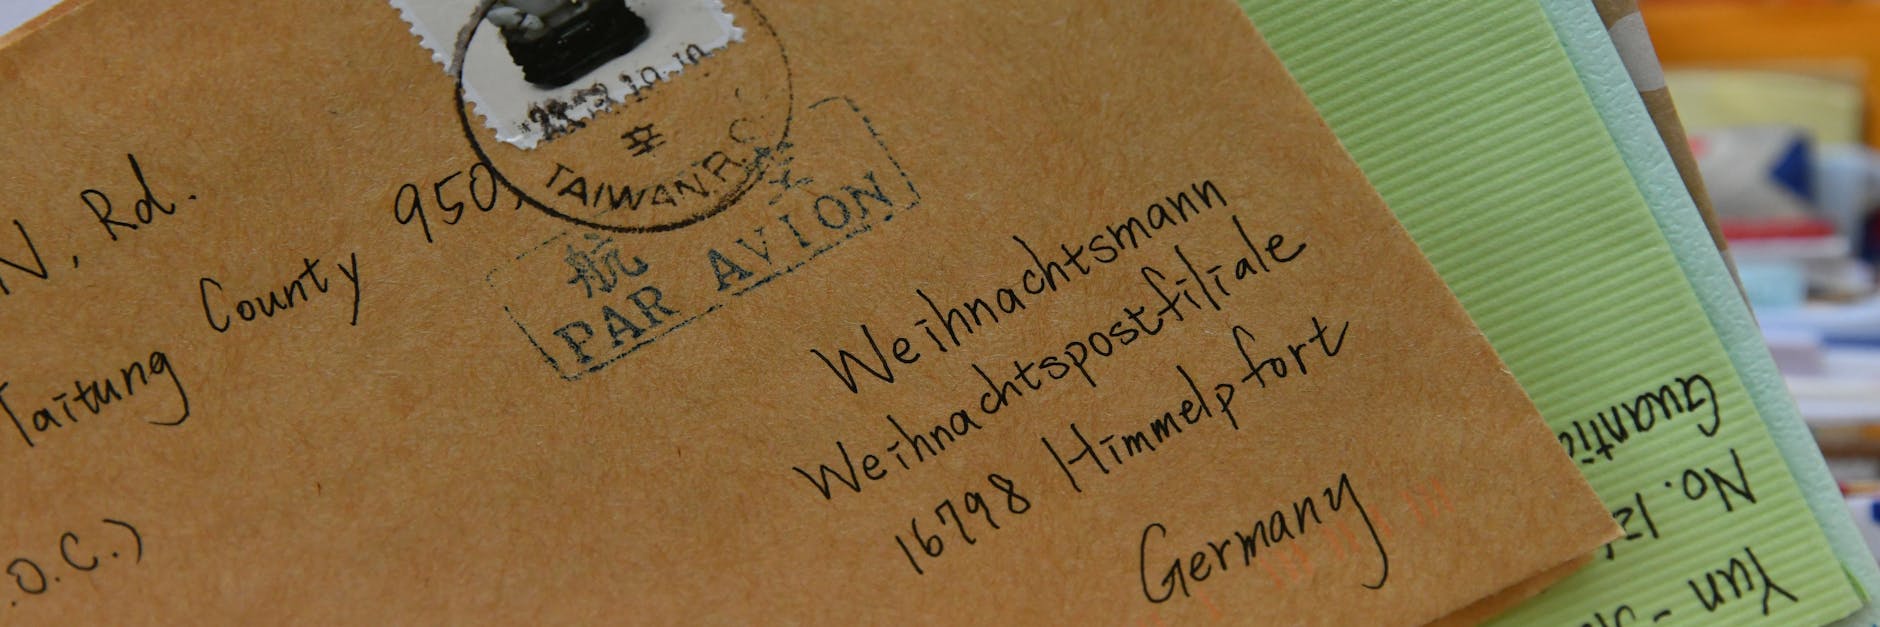 N. Rd.
Taitung County 950,
.O.C.)
辛
TAIWAN. R.O.
航
PAR AVION
Weihnachtsmann
Weihnachtspostfiliale
16798 Himmelpfort
Germany
Yun -
No.